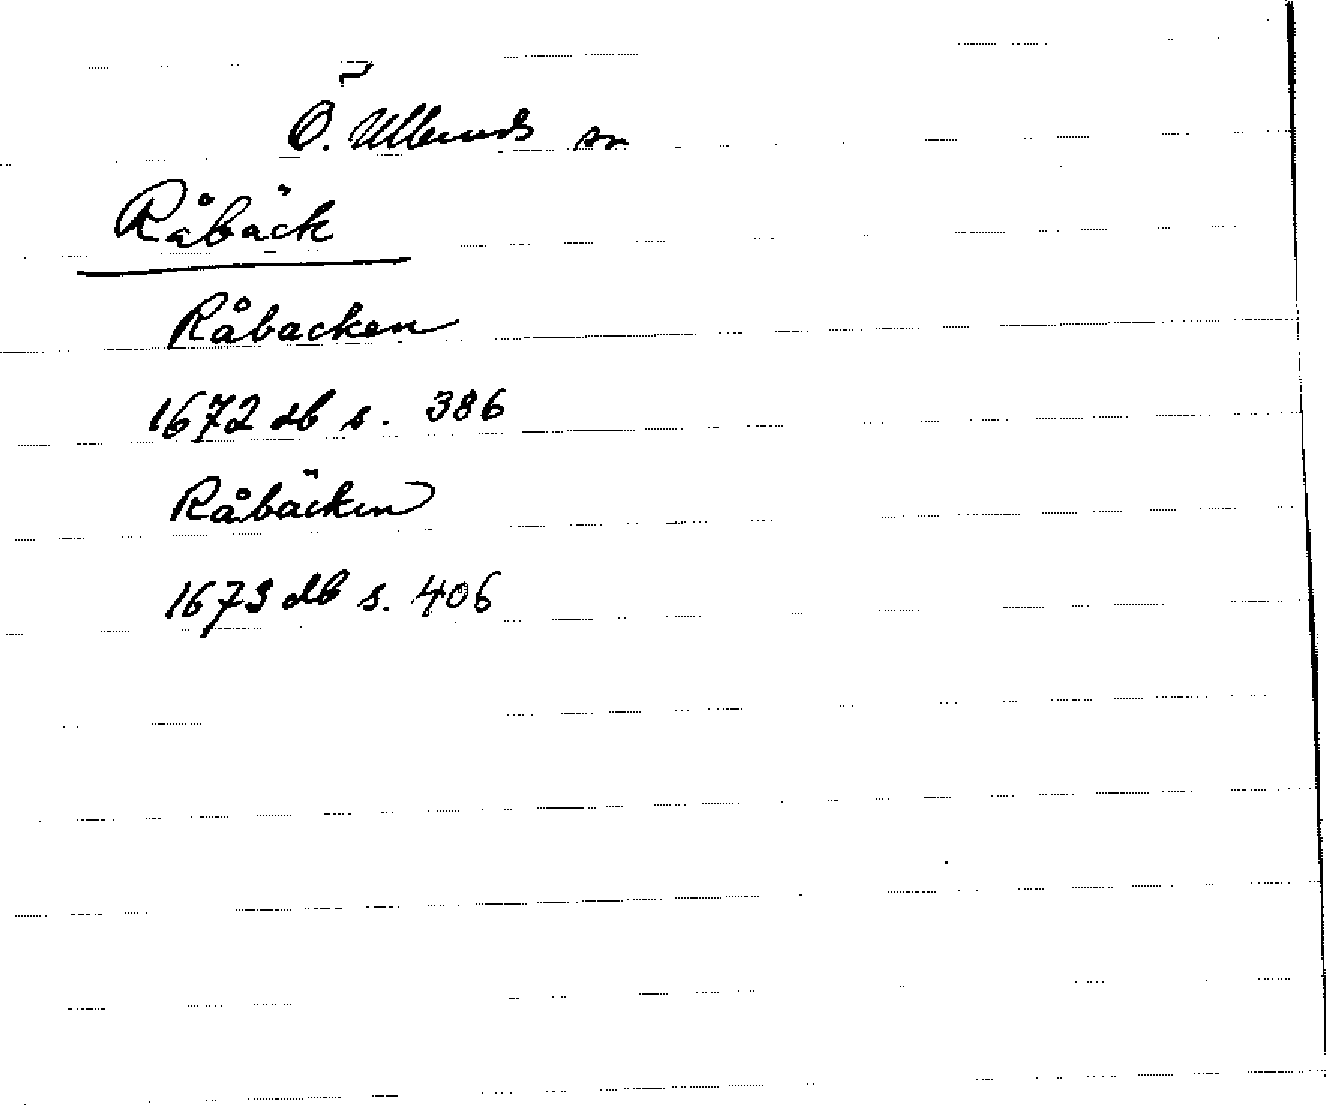 Ö. Ulleruds sn
Råbäck
Råbacken
1672 db s. 386
Råbäcken
1673 db s. 406